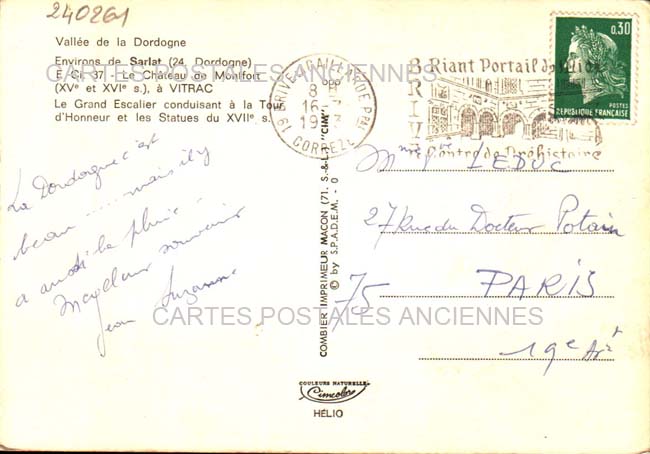 240261
Vallée de la Dordogne
Environs de Sarlat (24 Dordogne)
E Ci 37 - Le Château de Montfort
(XVe et XVIe s.), à VITRAC
Le Grand Escalier conduisant à la Tour
d'Honneur et les Statues du XVIIe s.
CARTES POSTALES ANCIENNES
19 BRIVE-LA-GAILLARDE PPAL
8H
16-7
19 3
CORREZE
Riant Portail du Midi
BRIVE
Centre de Préhistoire
0,30
POSTES
REPUBLIQUE FRANÇAISE
La Dordogne c'est
beau ...... mais il y
a aussi la pluie.
Meilleur souvenir
Jean Suzanne
COMBIER IMPRIMEUR MACON (71. S.-&-L. "CIM")
© by S.P.A.D.E.M. - 0
LEDUC
27 Rue du Docteur Potain
75 PARIS
19e Art
CARTES POSTALES ANCIENNES
COULEURS NATURELLES
Cimcolor
HÉLIO